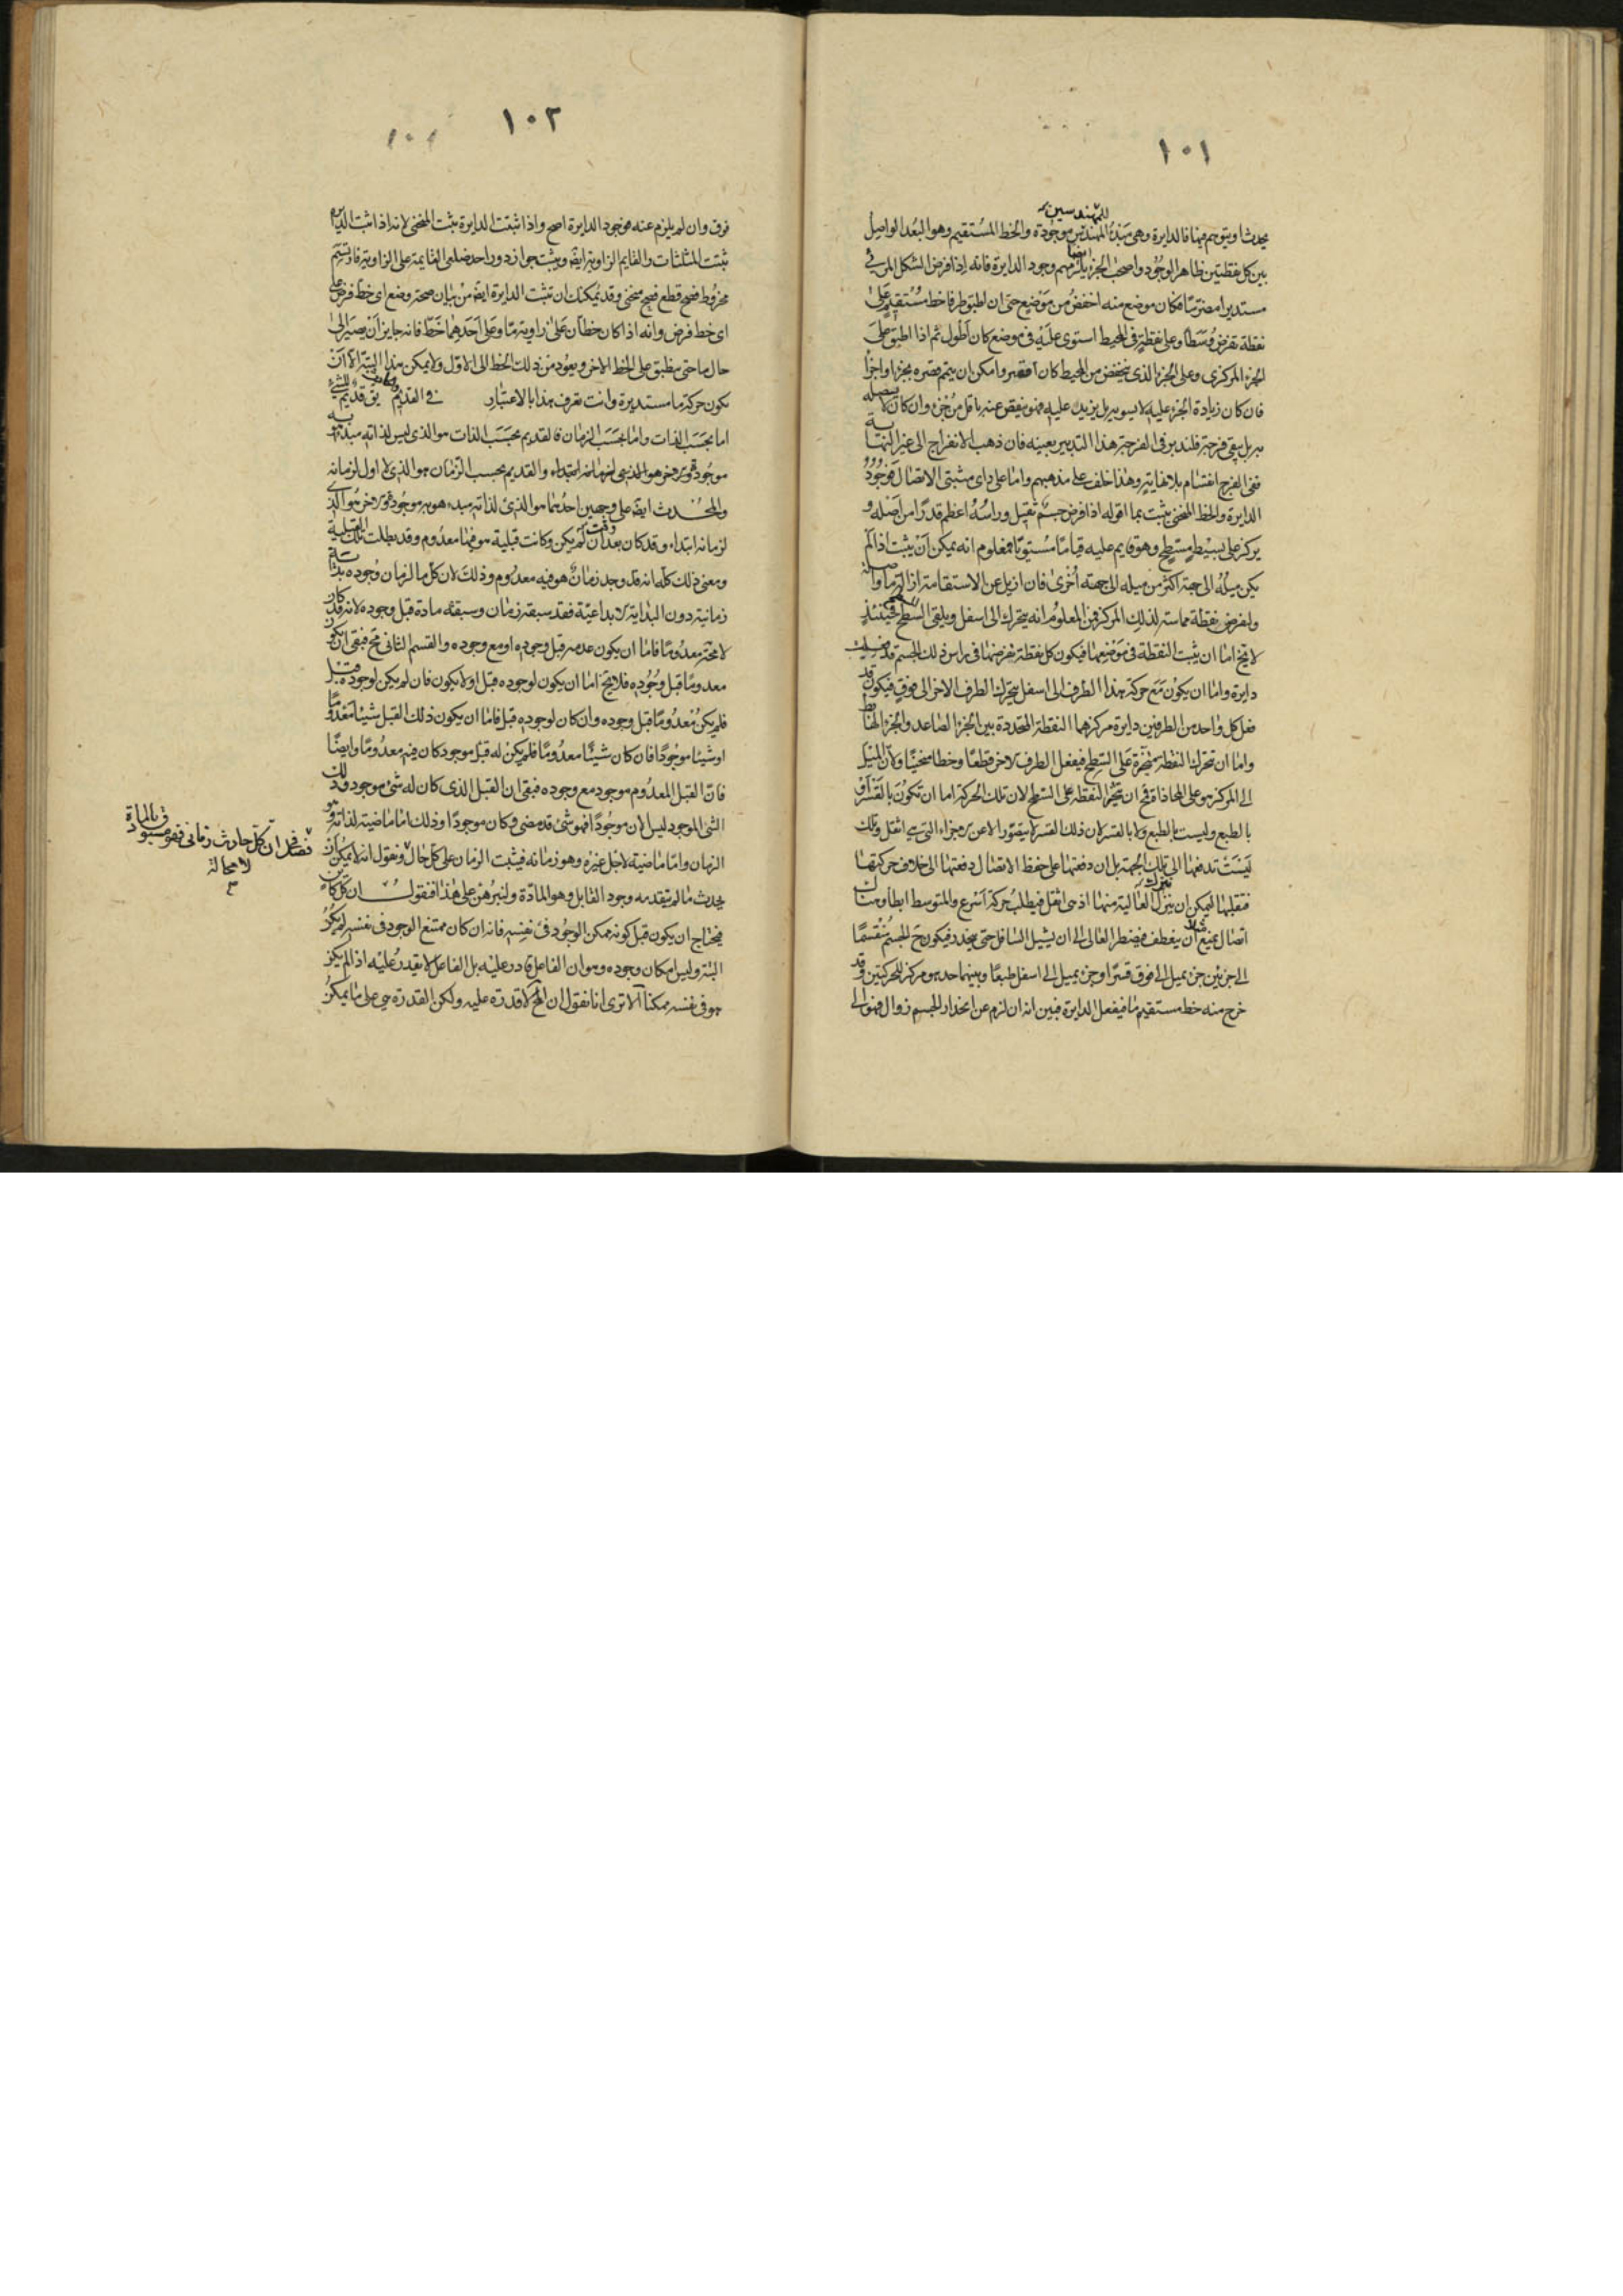 ١٠١
للمهندسين
يحدث او يتوهم فيها فالدايرة وهى مبدأ المهندس موجودة والخط المستقيم وهو البعد الواصل
بين كل نقطتين ظاهر الوجود واصحاب الجزء ايضا يلزمهم وجود الدايرة فانه اذا فرض الشكل المرئى
مستديرا مضرّسا فكان موضع منه اخفض من موضع حتى ان اطبق طرفا خط مستقيم على
نقطة تفرض وسطا وعلى نقطة فى المحيط استوى عليه فى موضع كان اطول ثم اذا اطبق على
الجزء المركزى وعلى الجزء الذى ينخفض من المحيط كان اقصر وامكن ان يتمم قصره بجزء او اجزاء
فان كان زيادة الجزء عليه لا يسويه بل يزيد عليه فهو ينقص عنه باقل من جزء وان كان لا يتصله
به بل يبقى فرجة فلندبر فى الفرجة هذا التدبير بعينه فان ذهب الانفراج الى غير النهاية
ففى الفرج انقسام بلا نهاية وهذا خلف على مذهبهم واما على راى مثبتى الاتصال فوجود
الدايرة والخط المنحنى يثبت بما اقوله اذا فرض جسم ثقيل وراسه اعظم قدرا من اصله و
يركز على بسيط مسطح وهو قايم عليه قياما مستويا فمعلوم انه يمكن ان يثبت اذا لم
يكن ميله الى جهة اكثر من ميله الى جهة اخرى فان ازيل عن الاستقامة ازالة ما واصله
ولنفرض نقطة مماسة لذلك المركز فمن المعلوم انه يتحرك الى اسفل ويلقى السطح فحينئذ
لا يخ اما ان يثبت النقطة فى موضعها فيكون كل نقطة نفرضها فى راس ذلك الجسم قد فعلت
دايرة واما ان يكون مع حركة هذا الطرف الى اسفل يتحرك الطرف الاخر الى فوق فيكون قد
فعل كل واحد من الطرفين دايرة مركزهما النقطة المتحددة بين الجزء الصاعد والجزء الهابط
واما ان تتحرك النقطة متجرة على السطح فيفعل الطرف الاخر قطعا وخطا منحنيا ولان الميل
الى المركز هو على المحاذاة فمح ان تنجر النقطة على السطح لان تلك الحركة اما ان تكون بالقسر او
بالطبع وليست بالطبع ولا بالقسر لان ذلك القسر لا يتصور الا عن الاجزاء التى هى اثقل وتلك
ليست تدفعها الى تلك الجهة بل ان دفعتها على حفظ الاتصال دفعتها الى خلاف حركتها
فتقلبها ليمكن ان ينزل العالية منها اذ هى اثقل فيطلب حركة اسرع والمتوسط ابطأ وهناك
اتصال يمنع مثلا ان ينعطف فيضطر العالى الى ان يشيل السافل حتى ينحدر فيكون ح الجسم منقسما
الى جزئين جزء يميل الى فوق قسرا وجزء يميل الى اسفل طبعا وبينهما حد هو مركز للحركتين وقد
خرج منه خط مستقيم ما فيفعل الدايرة فبين انه ان لزم عن انحدار الجسم زوال فهو الى
١٠٢
١٠١
فوق وان لم يلزم عنه فوجود الدايرة اصح واذا ثبتت الدايرة يثبت المنحنى لانه اذا اثبت الدايرة
ثبتت المثلثات والقايم الزاوية ايضه ويثبت جواز دور احد ضلعى القايمة على الزاوية فارتسم
مخروط فصح قطع فصح منحنى وقد يمكنك ان تثبت الدايرة ايضه من بيان صحة وضع اى خط فرض على
اى خط فرض وانه اذا كان خطان على زاوية ما وعلى احدهما خطا فانه جايز ان يصير الى
حال ما حتى ينطبق على الخط الاخر ويعود من ذلك الخط الى الاول ولا يمكن هذا البتة الا ان
يكون حركة ما مستديرة وانت تعرف هذا بالاعتبار فى القديم والحادث يق قديم للشئ
اما بحسب الذات واما بحسب الزمان فالقديم بحسب الذات هو الذى ليس لذاته مبدأ هو به
موجود والقديم بحسب الزمان هو الذى لا اول لزمانه
والمحدث ايضه على وجهين احدهما هو الذى لذاته مبدء هو به موجود والاخر هو الذى
لزمانه ابتداء وقد كان وقت لم يكن وكانت قبلية هو فيها معدوم وقد بطلت تلك القبلية
ومعنى ذلك كله انه قد وجد زمان هو فيه معدوم وذلك لان كل ما لزمان وجوده بداية
زمانية دون البداية الابداعية فقد سبقه زمان وسبقه مادة قبل وجوده لانه قد كان
لا محة معدوما فاما ان يكون عدمه قبل وجوده او مع وجوده والقسم الثانى مح فبقى ان يكون
معدوما قبل وجوده فلا يخ اما ان يكون لوجوده قبل او لا يكون فان لم يكن لوجوده قبل
فلم يكن معدوما قبل وجوده وان كان لوجوده قبل فاما ان يكون ذلك القبل شيئا معدوما
او شيئا موجودا فان كان شيئا معدوما فلم يكن له قبل موجود كان فيه معدوما وايضا
فان القبل المعدوم موجود مع وجوده فبقى ان القبل الذى كان له شئ موجود وذلك
الشئ الموجود ليس الان موجودا فهو شئ قد مضى وكان موجودا وذلك اما ماضية لذاته وهو
الزمان واما ماضية لاجل غيره وهو زمانه فيثبت الزمان على كل حال ونقول انه لا يمكن ان
يحدث ما لم يتقدمه وجود القابل وهو المادة ولنبرهن على هذا فنقول ان كل كاين
فيحتاج ان يكون قبل كونه ممكن الوجود فى نفسه فانه ان كان ممتنع الوجود فى نفسه لم يكن
البتة وليس امكان وجوده هو ان الفاعل قادر عليه بل الفاعل لا يقدر عليه اذا لم يكن
هو فى نفسه ممكنا الا ترى انا نقول ان المح لا قدرة عليه ولكن القدرة هى على ما يمكن
فصل فى ان كل حادث زمانى فهو مسبوق بالمادة
لا محالة